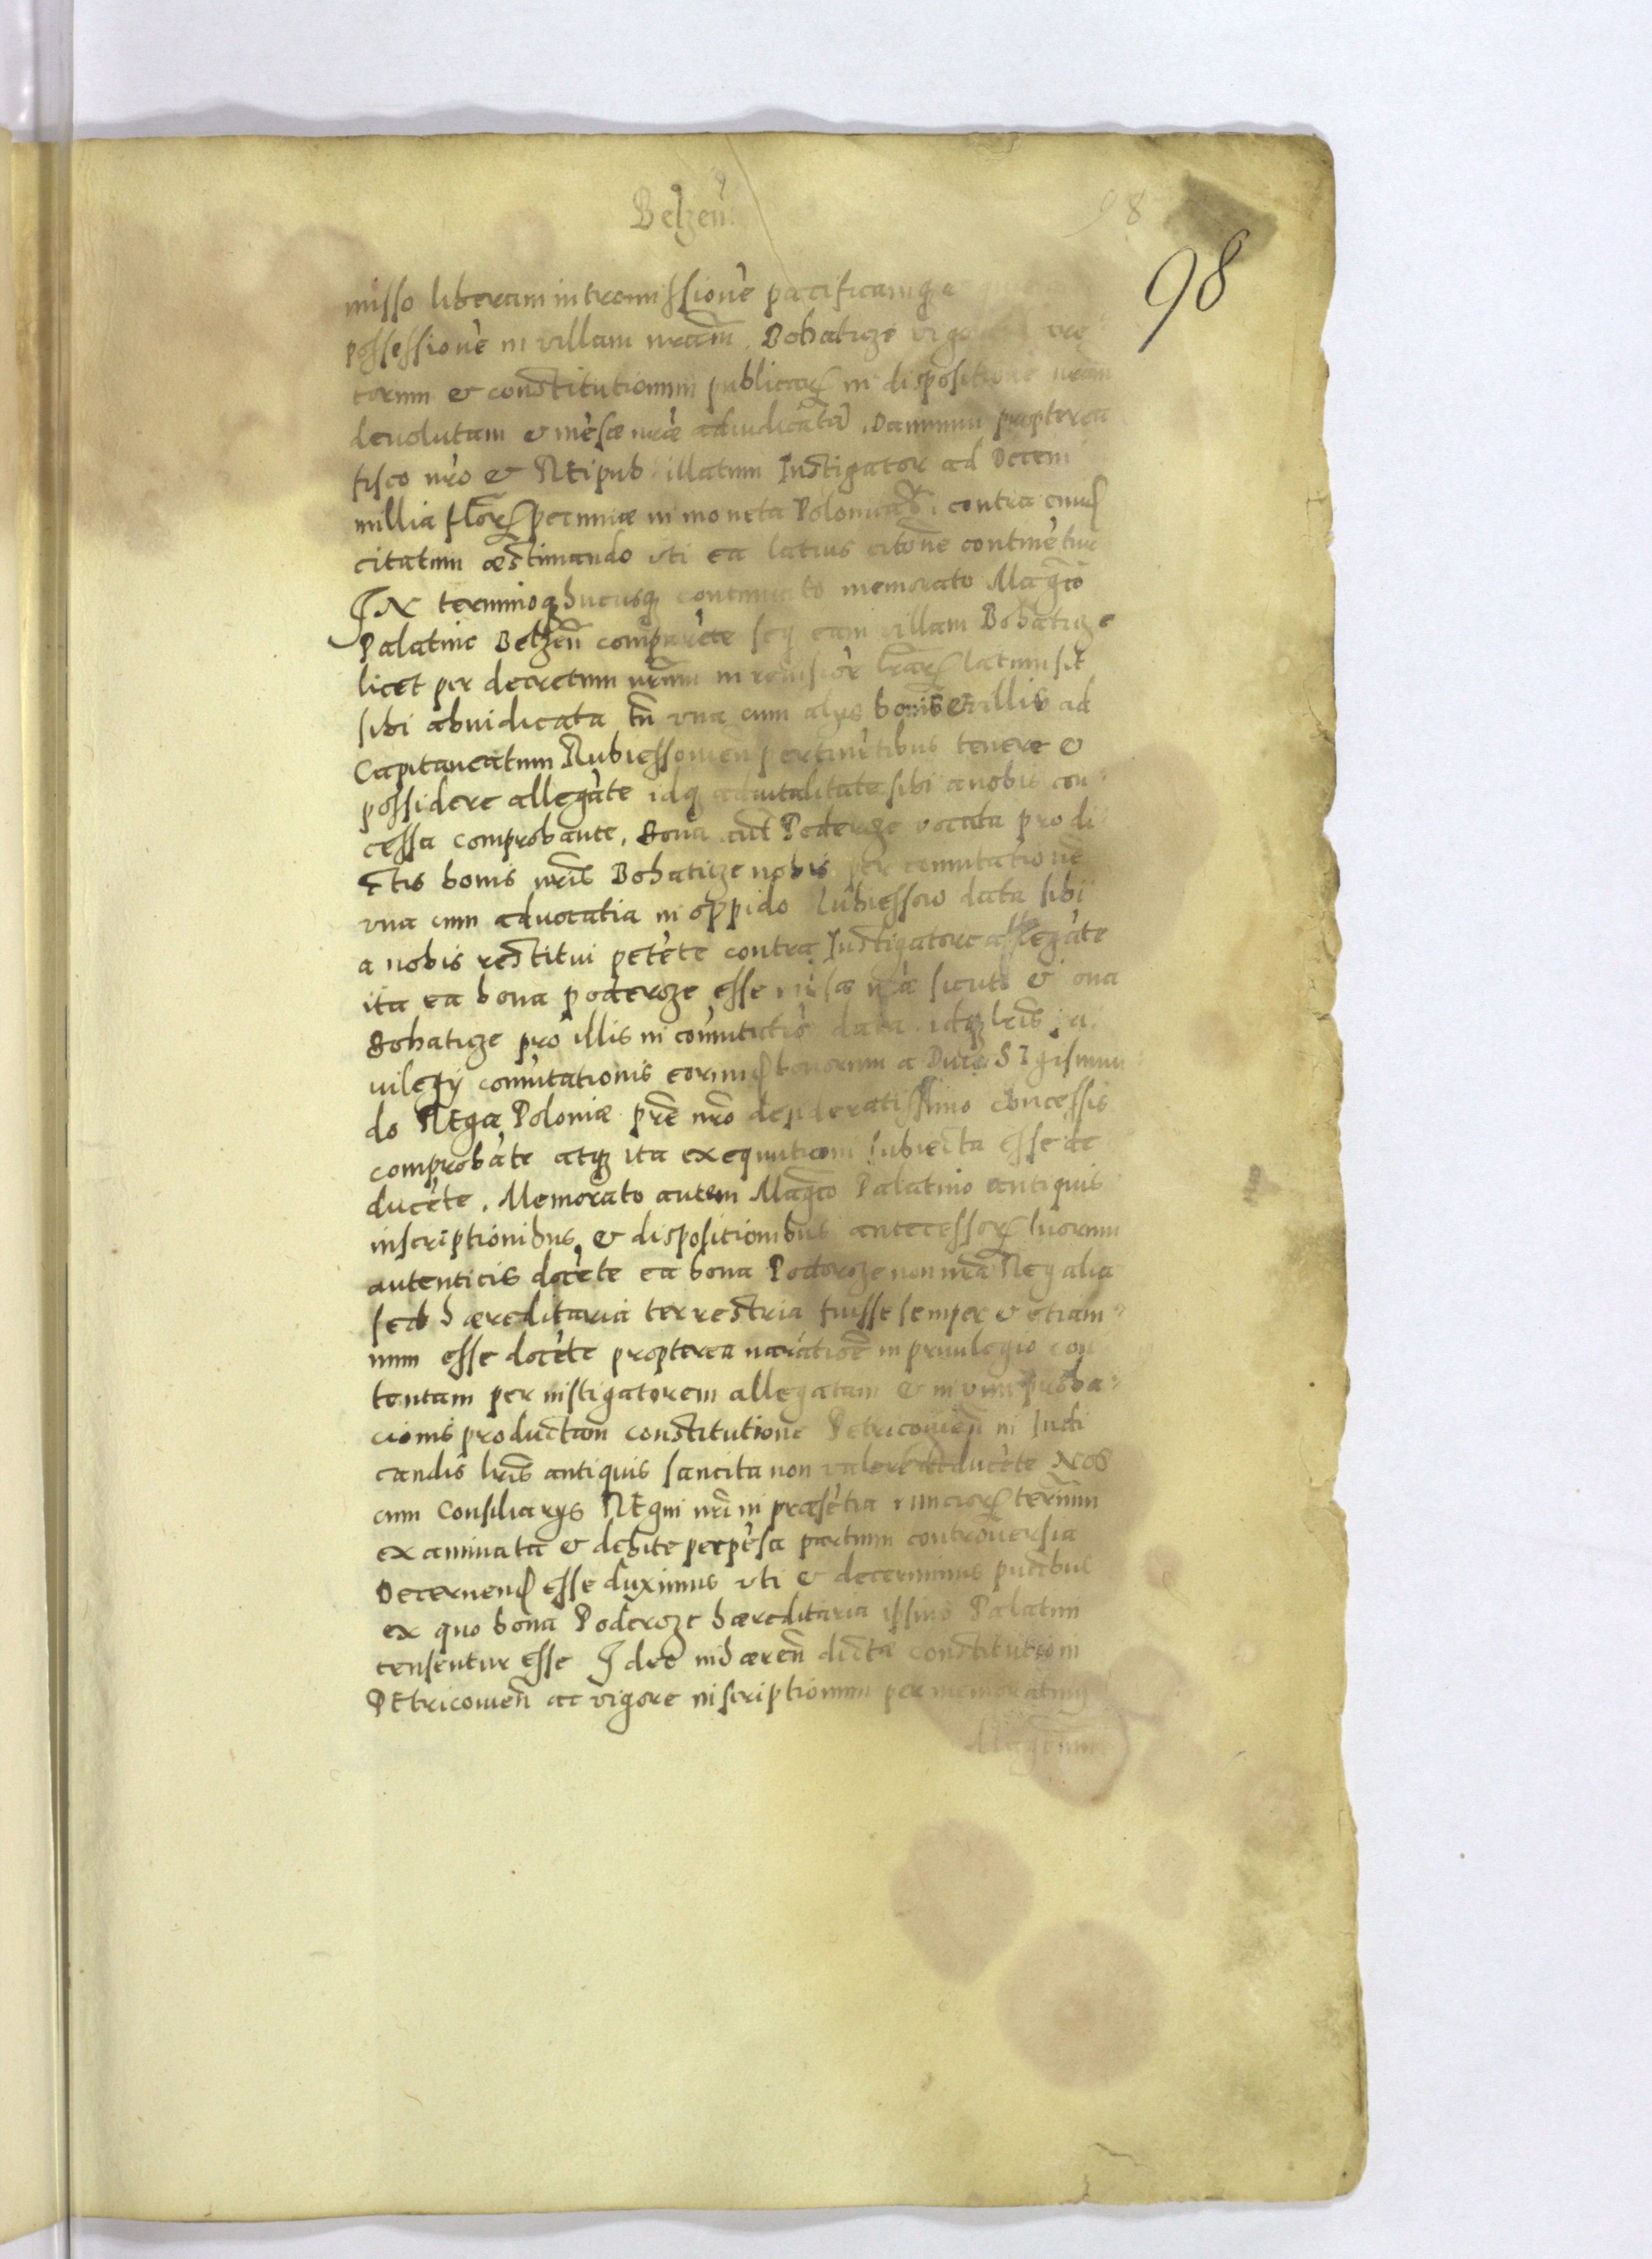 Belzeñ.
98
98
misso liberam intromissionē pacificamq̨
possessionē in villam nrām Bohaticze
torum & constitutionum publicar̨ in dispositionē nram
devolutam & mēsæ nrāe adiudicatā. Damnum propterea
fisco nr̄o & REipub illatum Instigator ad Decem
millia flor̨ pecuniæ in moneta Polonica contra
citatum æstimando uti ea latius citōne continētur
IN terminoq̨ hucusq̨ continuato memorato Magc̄o
Palatino Belzeñ comparēte seq̨ eam villam Bohaticze
licet per decretum nrūm in revisiōe lrār̨ latum sit
sibi abiudicata tñ una cum alijs bonis & villis ad
Capitaneatum Rubiessovieñ pertinētibus tenere &
possidere allegāte idq̨ advitalitate sibi a nobis con
cessa comprobante. Bona Poderoze vocata pro di
ctis bonis nrīs Bohaticze nobis per comutationē
una cum advocatia in oppido Rubiessow data sibi
a nobis restitui petēte contra Instigatore allegāte
ita ea bona poderoze esse mēsæ nrāe sicuti & bona
Bohaticze pro illis in comutatiōe data idq̨ lrīs
vilegij comutationis bonorum a Divo Sigismun
do REge Poloniæ prē nrō desideratissimo concessis
comprobāte atq̨ ita exequutioni subiecta esse de
ducēte. Memorato autem Magc̄o Palatino antiquis
inscriptionibus, & dispositionibus antecessor̨ suorum
autenticis docēte ea bona Poderoze non nrā REgalia
sed hæreditaria terrestria fuisse semper & etiam
num esse docēte propterea naratiōē in privilegio con
tentam per instigatorem allegatam & in vim proba
cionis productam constitutione Petricovieñ in Iudi
candis lrīs antiquis sancita non valere deducēte NOS
cum Consiliarijs REgni nrī in præsētia nuncior̨ terrūm
examinata & debite perpēsa partium controversia
Decernend̨ esse duximus uti & decernimus
ex quo bona Poderoze hæreditaria ipsius Palatini
censentur esse Ideo inhæreñ dictæ constitutioni
PEtricovieñ ac vigore inscriptionum per memoratum
Magc̄um